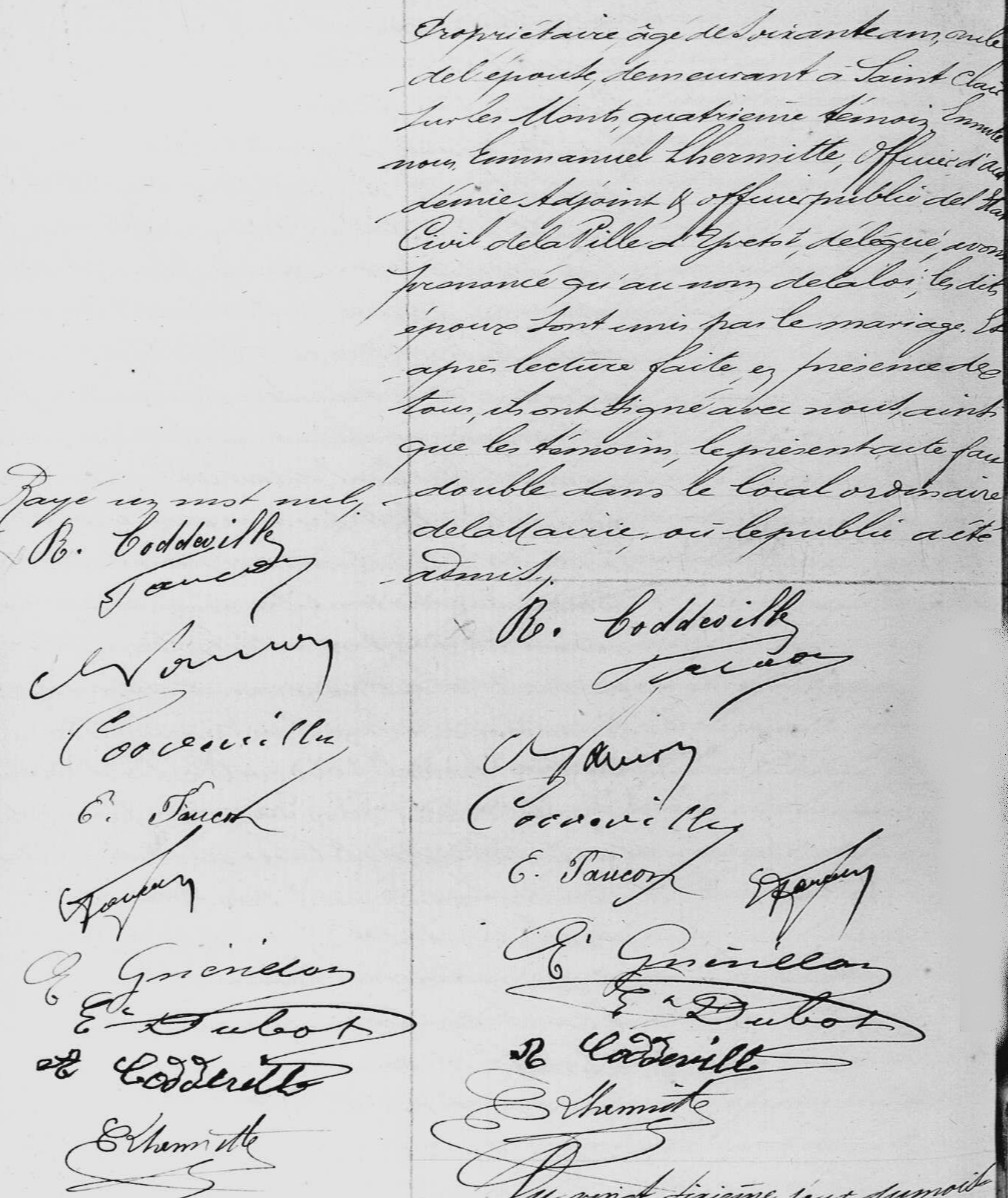 Propriétaire âgé de soixante ans, oncle
de l'épouse, demeurant à Saint Clair
sur les Monts, quatrième témoin, Ensuite
nous Emmanuel Lhermitte, Officier d'Aca
démie Adjoint & officier public de l'Etat
Civil de la Ville d'Yvetot, délégué, avons
prononcé qu'au nom de la loi, les dits
époux sont unis par le mariage. Et
après lecture faite en présence de
tous, ils ont signé avec nous, ainsi
que les témoins, le présent acte fait
double dans le local ordinaire
de la Mairie, où le public a été
admis.
Rayé un mot nul,
R. Coddeville
Faucon
Coddeville
E. Faucon
E Guérillon
E. Dubot
R Coddeville
E Lhermitte
R. Coddeville
Faucon
Coddeville
E. Faucon
E Guérillon
E. Dubot
R Coddeville
E Lhermitte
Du vingt sixième jour du mois